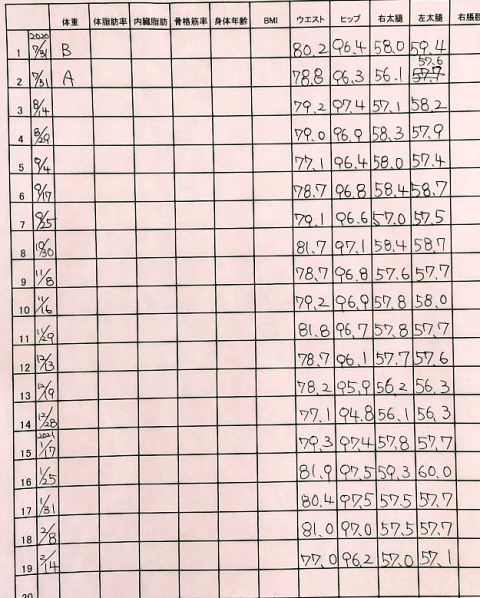 体重 体脂肪率 内臓脂肪 骨格筋率 身体年齢 BMI ウエスト ヒップ 右太腿 左太腿 右脹脛
1 2020 7/31 B 80.2 96.4 58.0 59.4
2 7/31 A 78.8 96.3 56.1 57.6 57.7
3 8/14 79.2 97.4 57.1 58.2
4 8/29 79.0 96.9 58.3 57.9
5 9/4 77.1 96.4 58.0 57.4
6 9/17 78.7 96.8 58.4 58.7
7 9/25 79.1 96.6 57.0 57.5
8 10/30 81.7 97.1 58.4 58.7
9 11/8 78.7 96.8 57.6 57.7
10 11/16 79.2 96.9 57.8 58.0
11 11/29 81.8 96.7 57.8 57.7
12 12/13 78.7 96.1 57.7 57.6
13 12/19 78.2 95.9 56.2 56.3
14 12/28 77.1 94.8 56.1 56.3
15 2021 1/17 79.3 97.4 57.8 57.7
16 1/25 81.9 97.5 59.3 60.0
17 1/31 80.4 97.5 57.5 57.7
18 2/8 81.0 97.0 57.5 57.7
19 2/14 77.0 96.2 57.0 57.1
20